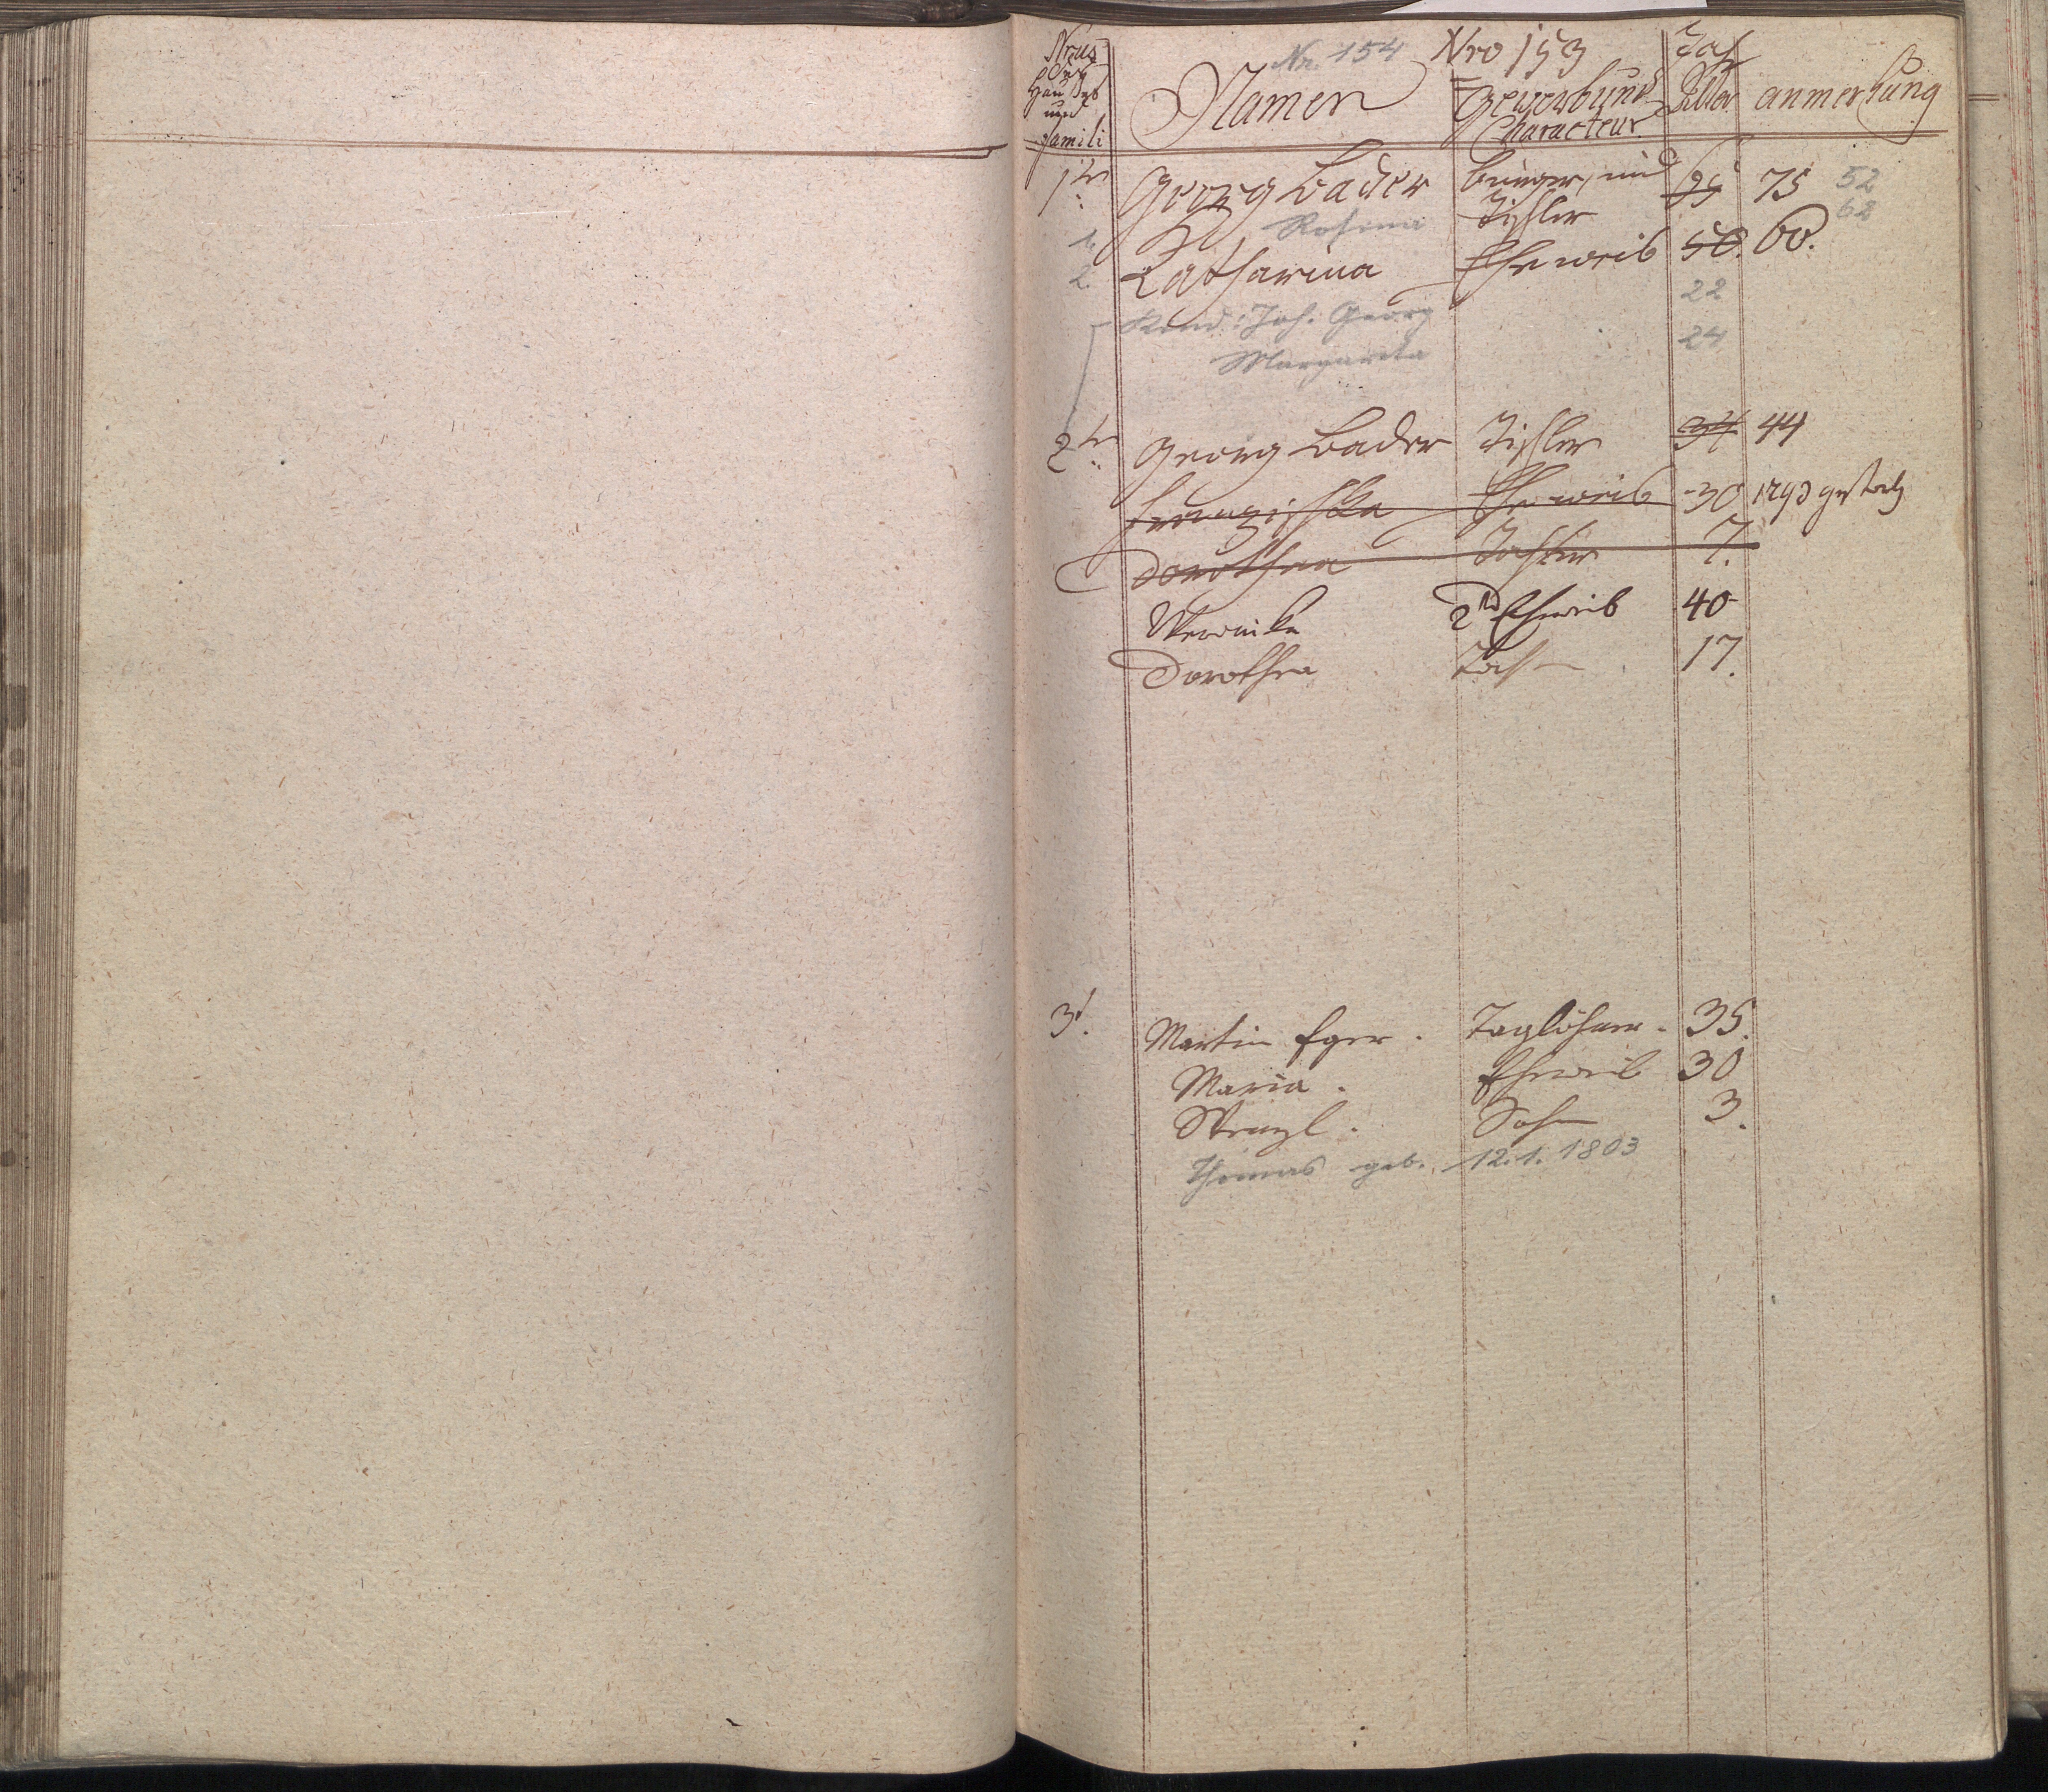 Nr. 154 Nro 153
Nrus des Haußes und Famili Namen Gewerb und Characteur Jahr Alter anmerkung
1te Georg Bader burger, und 65 75 52
Tischler 62
1. Rosina
2. Catharina Eheweib 50. 60.
22
Kind: Joh. Georg
24
Margareta
2te Georg Bader Tischler 34 44
Franzischka Eheweib 30 1793 gestorb
Dorothea Tochter 7.
Veronika 2te Eheweib 40
Dorothea Toch 17.
3t. Martin Eger. Taglöhner. 35.
Maria. Eheweib 30
Wenzl. Sohn 3.
Thomas geb. 12.1.1803